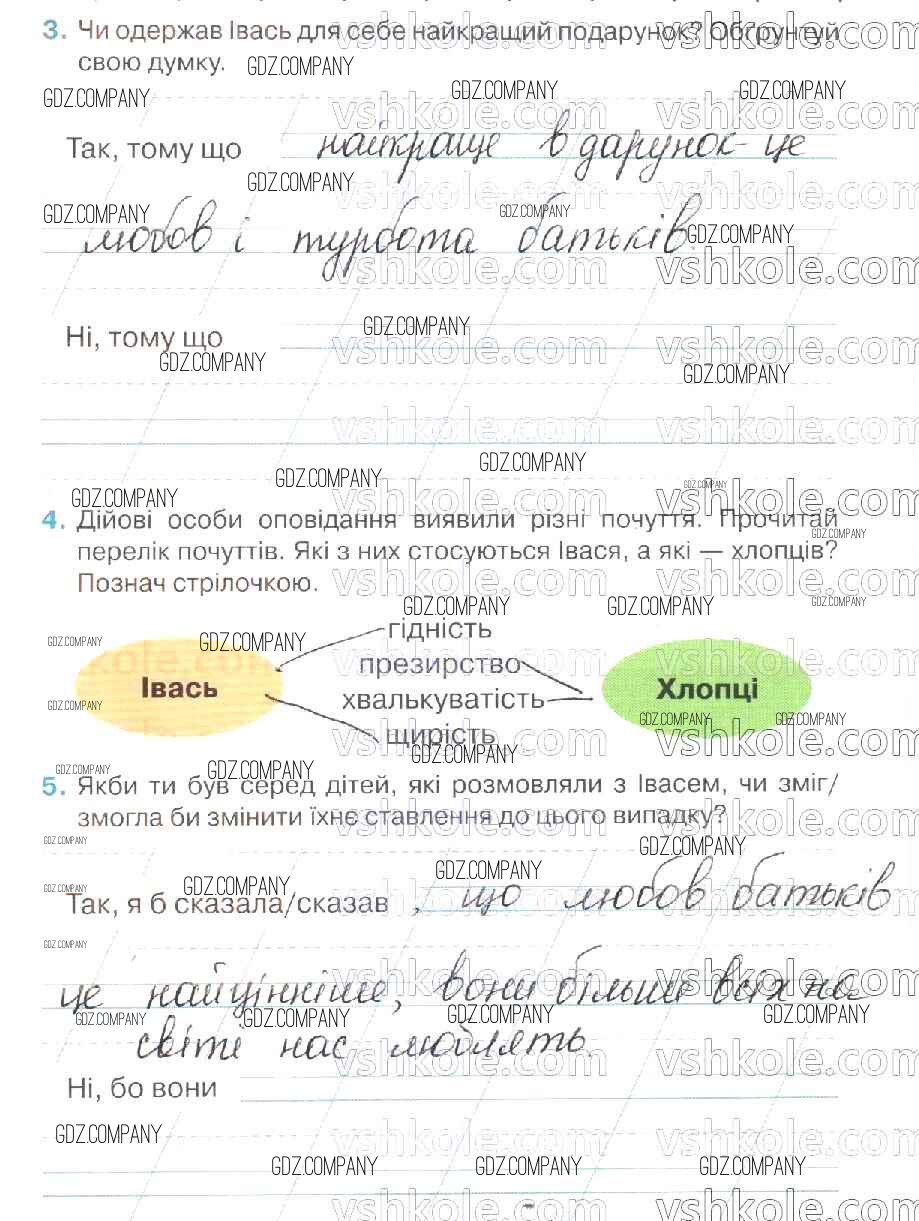 3. Чи одержав Івась для себе найкращий подарунок? Обґрунтуй
свою думку.
Так, тому що найкраще в дарунок - це
любов і турбота батьків.
Ні, тому що
4. Дійові особи оповідання виявили різні почуття. Прочитай
перелік почуттів. Які з них стосуються Івася, а які — хлопців?
Познач стрілочкою.
гідність
презирство
Івась
хвалькуватість
Хлопці
щирість
5. Якби ти був серед дітей, які розмовляли з Івасем, чи зміг/
змогла би змінити їхнє ставлення до цього випадку?
Так, я б сказала/сказав , що любов батьків
це найцінніше, вони більши всіх на
світі нас люблять.
Ні, бо вони
GDZ.COMPANY
vshkole.com